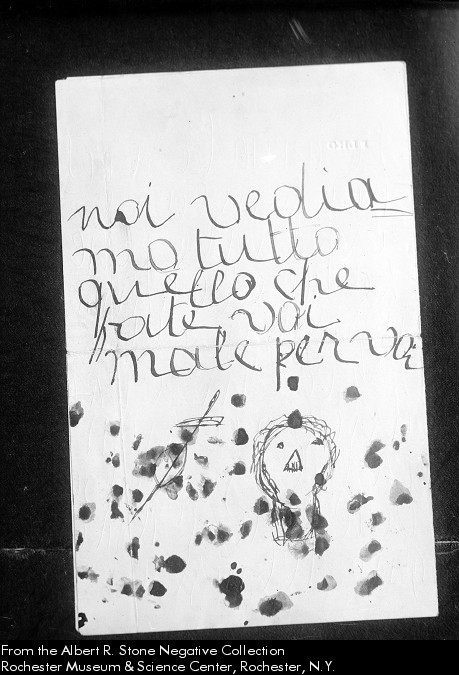 noi vedia
mo tutto
quello che
fate, voi
male per va
From the Albert R. Stone Negative Collection
Rochester Museum & Science Center, Rochester, N.Y.